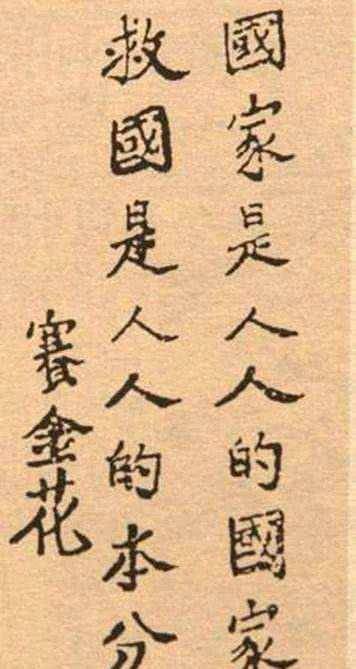 國家是人人的國家
救國是人人的本分
賽金花